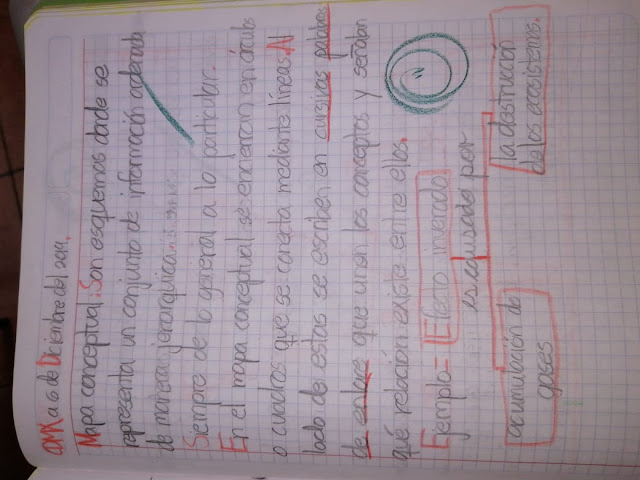 CDMX a 6 de Diciembre del 2019.
Mapa conceptual: Son esquemas donde se
representa un conjunto de información ordenada
de manera jerarquica.
Siempre de lo general a lo particular.
En el mapa conceptual se encierran en círculos
o cuadros que se conecta mediante líneas. Al
lado de estas se escriben en cursivas palabras
de enlace que unan los conceptos y señalan
qué relación existe entre ellos.
Ejemplo= Efecto invernadero
es causado por
acumulación de
gases
la destrucción
de los ecosistemas.